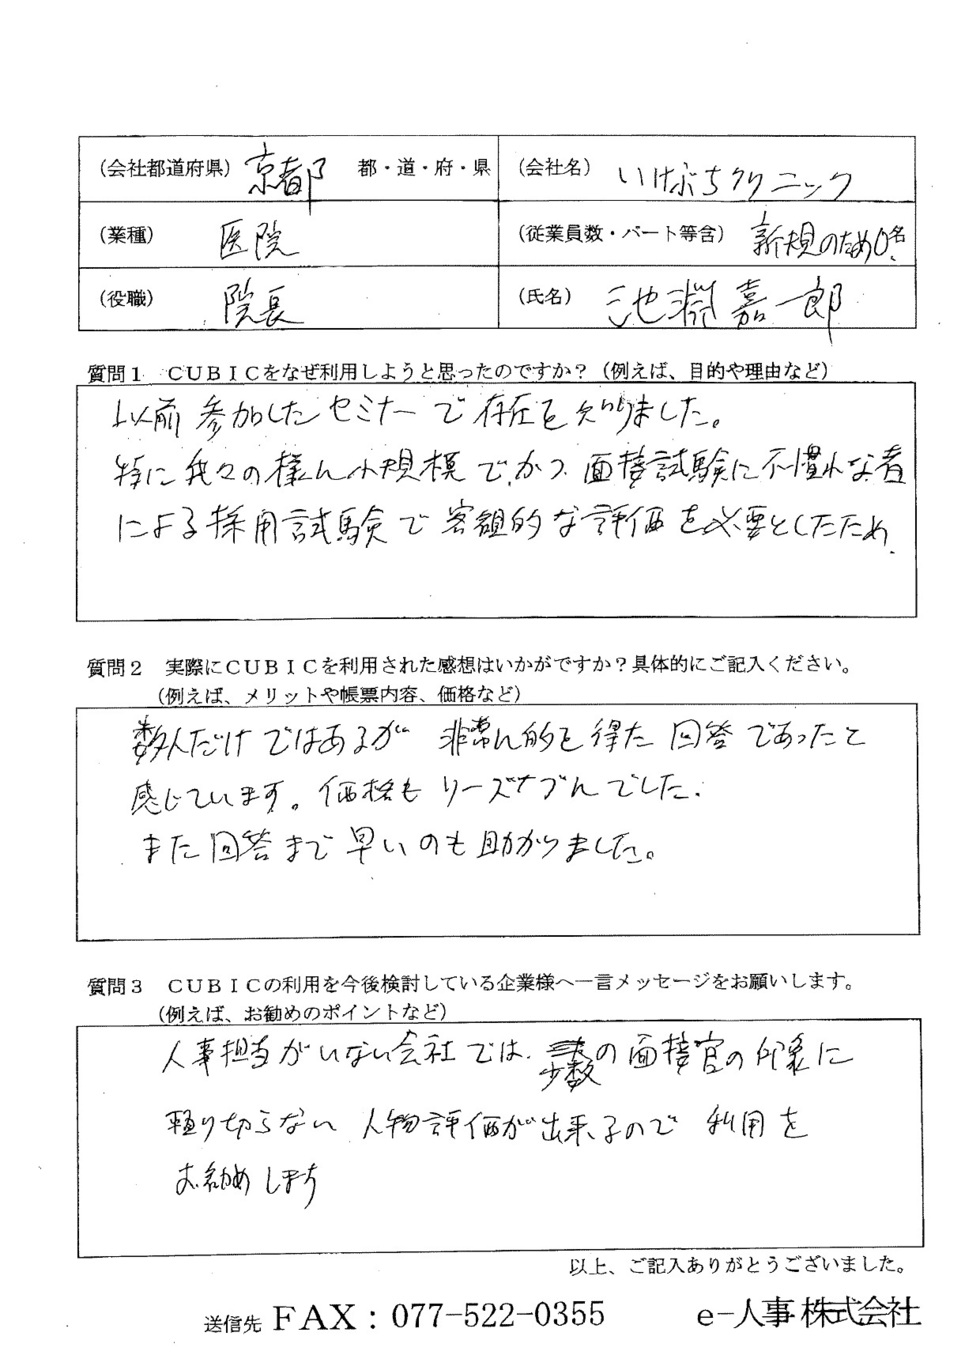 (会社都道府県) 京都 都・道・府・県 (会社名) いけぶちクリニック
(業種) 医院 (従業員数・パート等含) 新規のため0名
(役職) 院長 (氏名) 池淵嘉一郎
質問1 CUBICをなぜ利用しようと思ったのですか?(例えば、目的や理由など)
以前参加したセミナーで存在を知りました。
特に我々の様な小規模でかつ面接試験に不慣れな者
による採用試験で客観的な評価を必要としたため.
質問2 実際にCUBICを利用された感想はいかがですか?具体的にご記入ください。
(例えば、メリットや帳票内容、価格など)
数人だけではあるが 非常に的を得た回答であったと
感じています。価格もリーズナブルでした.
また回答まで早いのも助かりました。
質問3 CUBICの利用を今後検討している企業様へ一言メッセージをお願いします。
(例えば、お勧めのポイントなど)
人事担当がいない会社では、少数の面接官の印象に
頼り切らない人物評価が出来るので利用を
お勧めします
以上、ご記入ありがとうございました。
送信先 FAX:077-522-0355 e-人事株式会社